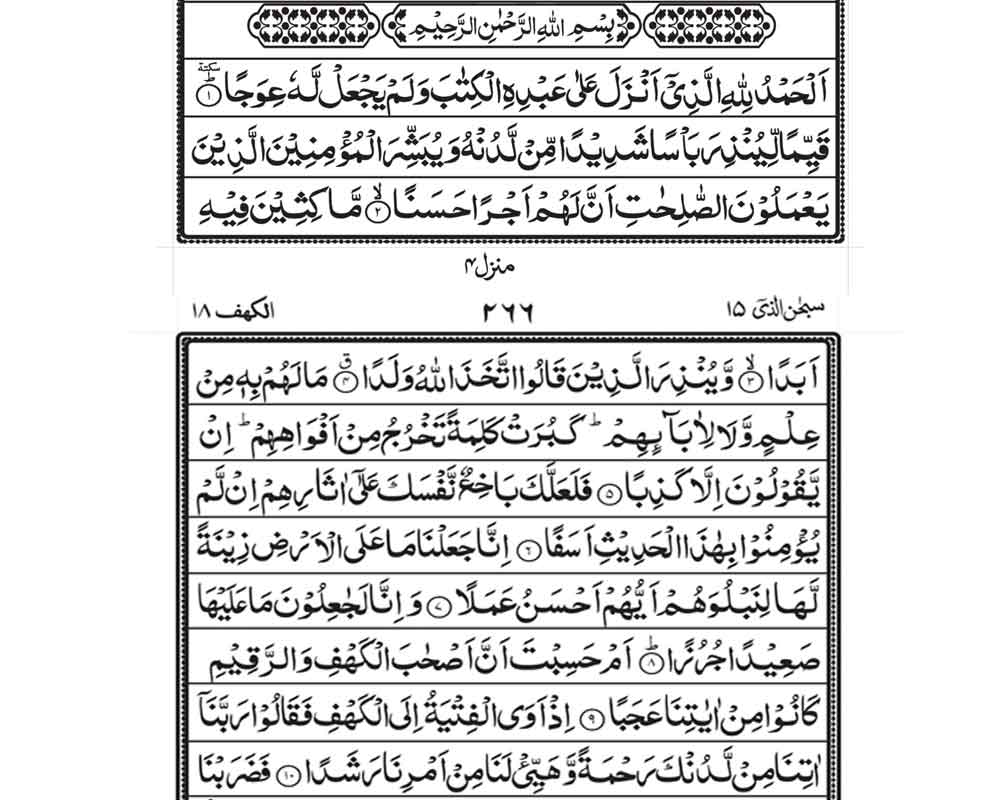 بِسْمِ اللهِ الرَّحْمٰنِ الرَّحِيْمِ
اَلْحَمْدُ لِلّٰهِ الَّذِيْۤ اَنْزَلَ عَلٰى عَبْدِهِ الْكِتٰبَ وَلَمْ يَجْعَلْ لَّهٗ عِوَجًا ؕ سكتة ۱
قَيِّمًا لِّيُنْذِرَ بَاْسًا شَدِيْدًا مِّنْ لَّدُنْهُ وَيُبَشِّرَ الْمُؤْمِنِيْنَ الَّذِيْنَ
يَعْمَلُوْنَ الصّٰلِحٰتِ اَنَّ لَهُمْ اَجْرًا حَسَنًا ۙ ۲ مَّاكِثِيْنَ فِيْهِ
منزل ۴
سبحٰن الذیٓ ۱۵ ۲۶۶ الكهف ۱۸
اَبَدًا ۙ ۳ وَّيُنْذِرَ الَّذِيْنَ قَالُوا اتَّخَذَ اللهُ وَلَدًا ۗ ۴ مَا لَهُمْ بِهٖ مِنْ
عِلْمٍ وَّلَا لِاٰبَآئِهِمْ ؕ كَبُرَتْ كَلِمَةً تَخْرُجُ مِنْ اَفْوَاهِهِمْ ؕ اِنْ
يَّقُوْلُوْنَ اِلَّا كَذِبًا ۵ فَلَعَلَّكَ بَاخِعٌ نَّفْسَكَ عَلٰۤى اٰثَارِهِمْ اِنْ لَّمْ
يُؤْمِنُوْا بِهٰذَا الْحَدِيْثِ اَسَفًا ۶ اِنَّا جَعَلْنَا مَا عَلَى الْاَرْضِ زِيْنَةً
لَّهَا لِنَبْلُوَهُمْ اَيُّهُمْ اَحْسَنُ عَمَلًا ۷ وَاِنَّا لَجٰعِلُوْنَ مَا عَلَيْهَا
صَعِيْدًا جُرُزًا ؕ ۸ اَمْ حَسِبْتَ اَنَّ اَصْحٰبَ الْكَهْفِ وَالرَّقِيْمِ
كَانُوْا مِنْ اٰيٰتِنَا عَجَبًا ۹ اِذْ اَوَى الْفِتْيَةُ اِلَى الْكَهْفِ فَقَالُوْا رَبَّنَاۤ
اٰتِنَا مِنْ لَّدُنْكَ رَحْمَةً وَّهَيِّئْ لَنَا مِنْ اَمْرِنَا رَشَدًا ۱۰ فَضَرَبْنَا